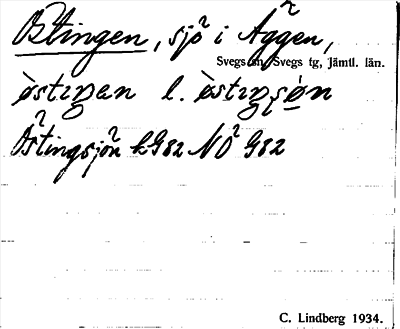 Östingen, sjö i Äggen,
Svegs sn, Svegs tg, Jämtl. län.
òstıŋen l. òstıŋʂøn
Östingsjön kG82 NO G82
C. Lindberg 1934.